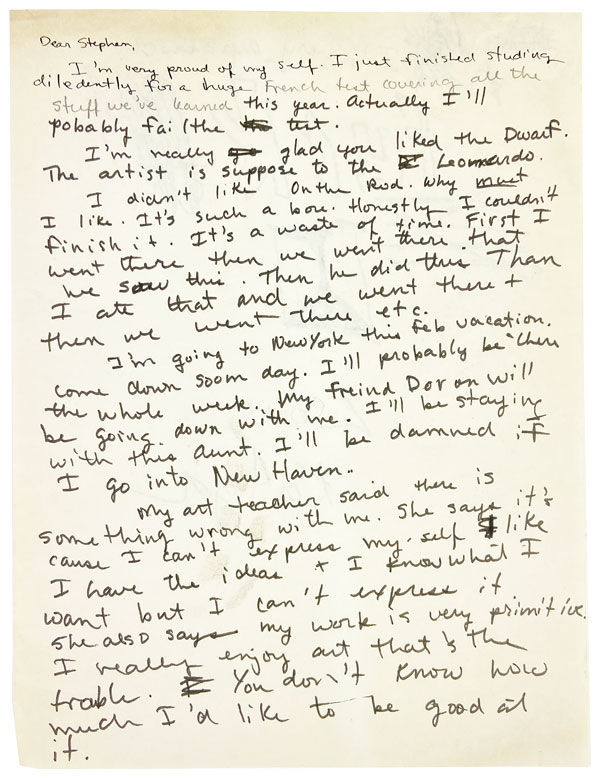 Dear Stephen,
I'm very proud of my self. I just finished studing
diledently for a huge French test covering all the
stuff we've learned this year. Actually I'll
pobably fail the test.
I'm really glad you liked the Dwarf.
The artist is suppose to the Leonardo.
I didn't like On the Rod. Why must
I like. It's such a bore. Honestly I couldn't
finish it. It's a waste of time. First I
went there then we went there that
we saw this. Then he did this Than
I ate that and we went there +
then we went there etc.
I'm going to New York this Feb vacation.
come down soom day. I'll probably be there
the whole week. My freind Doron will
be going down with me. I'll be staying
with this aunt. I'll be damned if
I go into New Haven..
My art teacher said there is
something wrong with me. She says it's
cause I can't express my self like
I have the ideas + I know what I
want but I can't express it
She also says my work is very primitive.
I really enjoy art that's the
trouble. You don't know how
much I'd like to be good at
it.